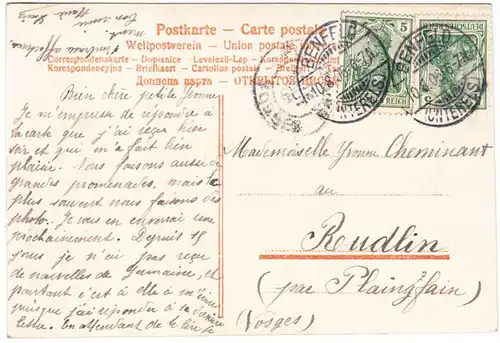 Postkarte - Carte postale
Weltpostverein - Union postale
Correspondenzkarte - Dopisnice - Levelező-Lap -
Korespondencyjna - Briefkaart - Cartolina postale -
Дописна карта - ОТКРЫТОЕ
5
REICH
BENFELD
(UNTERELS.)
BENFELD
(UNTERELS.)
Bien chère petite Yvonne
Je m'empresse de répondre à
ta carte que j'ai reçue hier
soir et qui m'a fait bien
plaisir. Nous faisons aussi de
grandes promenades, mais le
plus souvent nous faisons des
photo. Je vous en enverrai une
prochainement. Depuis 15
jours je n'ai pas reçu
de nouvelles de Germaine, et
pourtant c'est à elle à m'écrire
puisque j'ai répondu à sa dernière
lettre. En attendant de te lire je
Mademoiselle Yvonne Cheminant
au
Rudlin
(par Plainfain)
(Vosges)